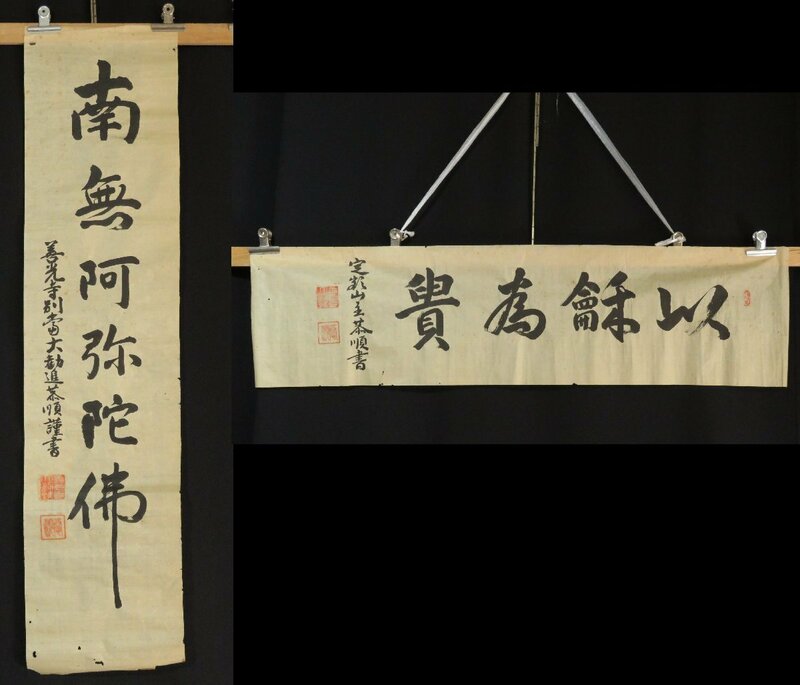 南無阿弥陀佛
善光寺別當大勧進恭順謹書
以龢為貴
定額山主恭順書